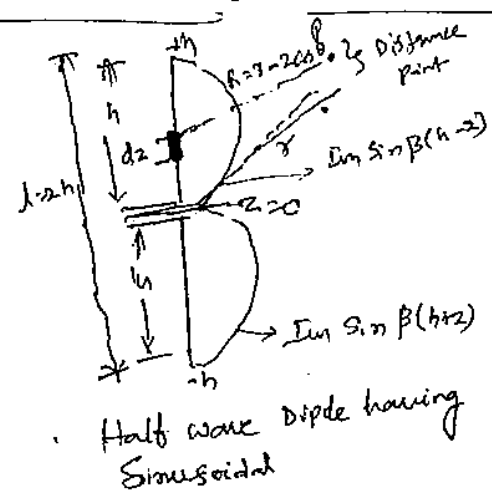 +h
R=r-zcosθ
P
Distance
point
h
dz
r
Im Sin β(h-z)
l=2h
z=0
h
Im Sin β(h+z)
-h
Half wave Dipole having
Sinusoidal